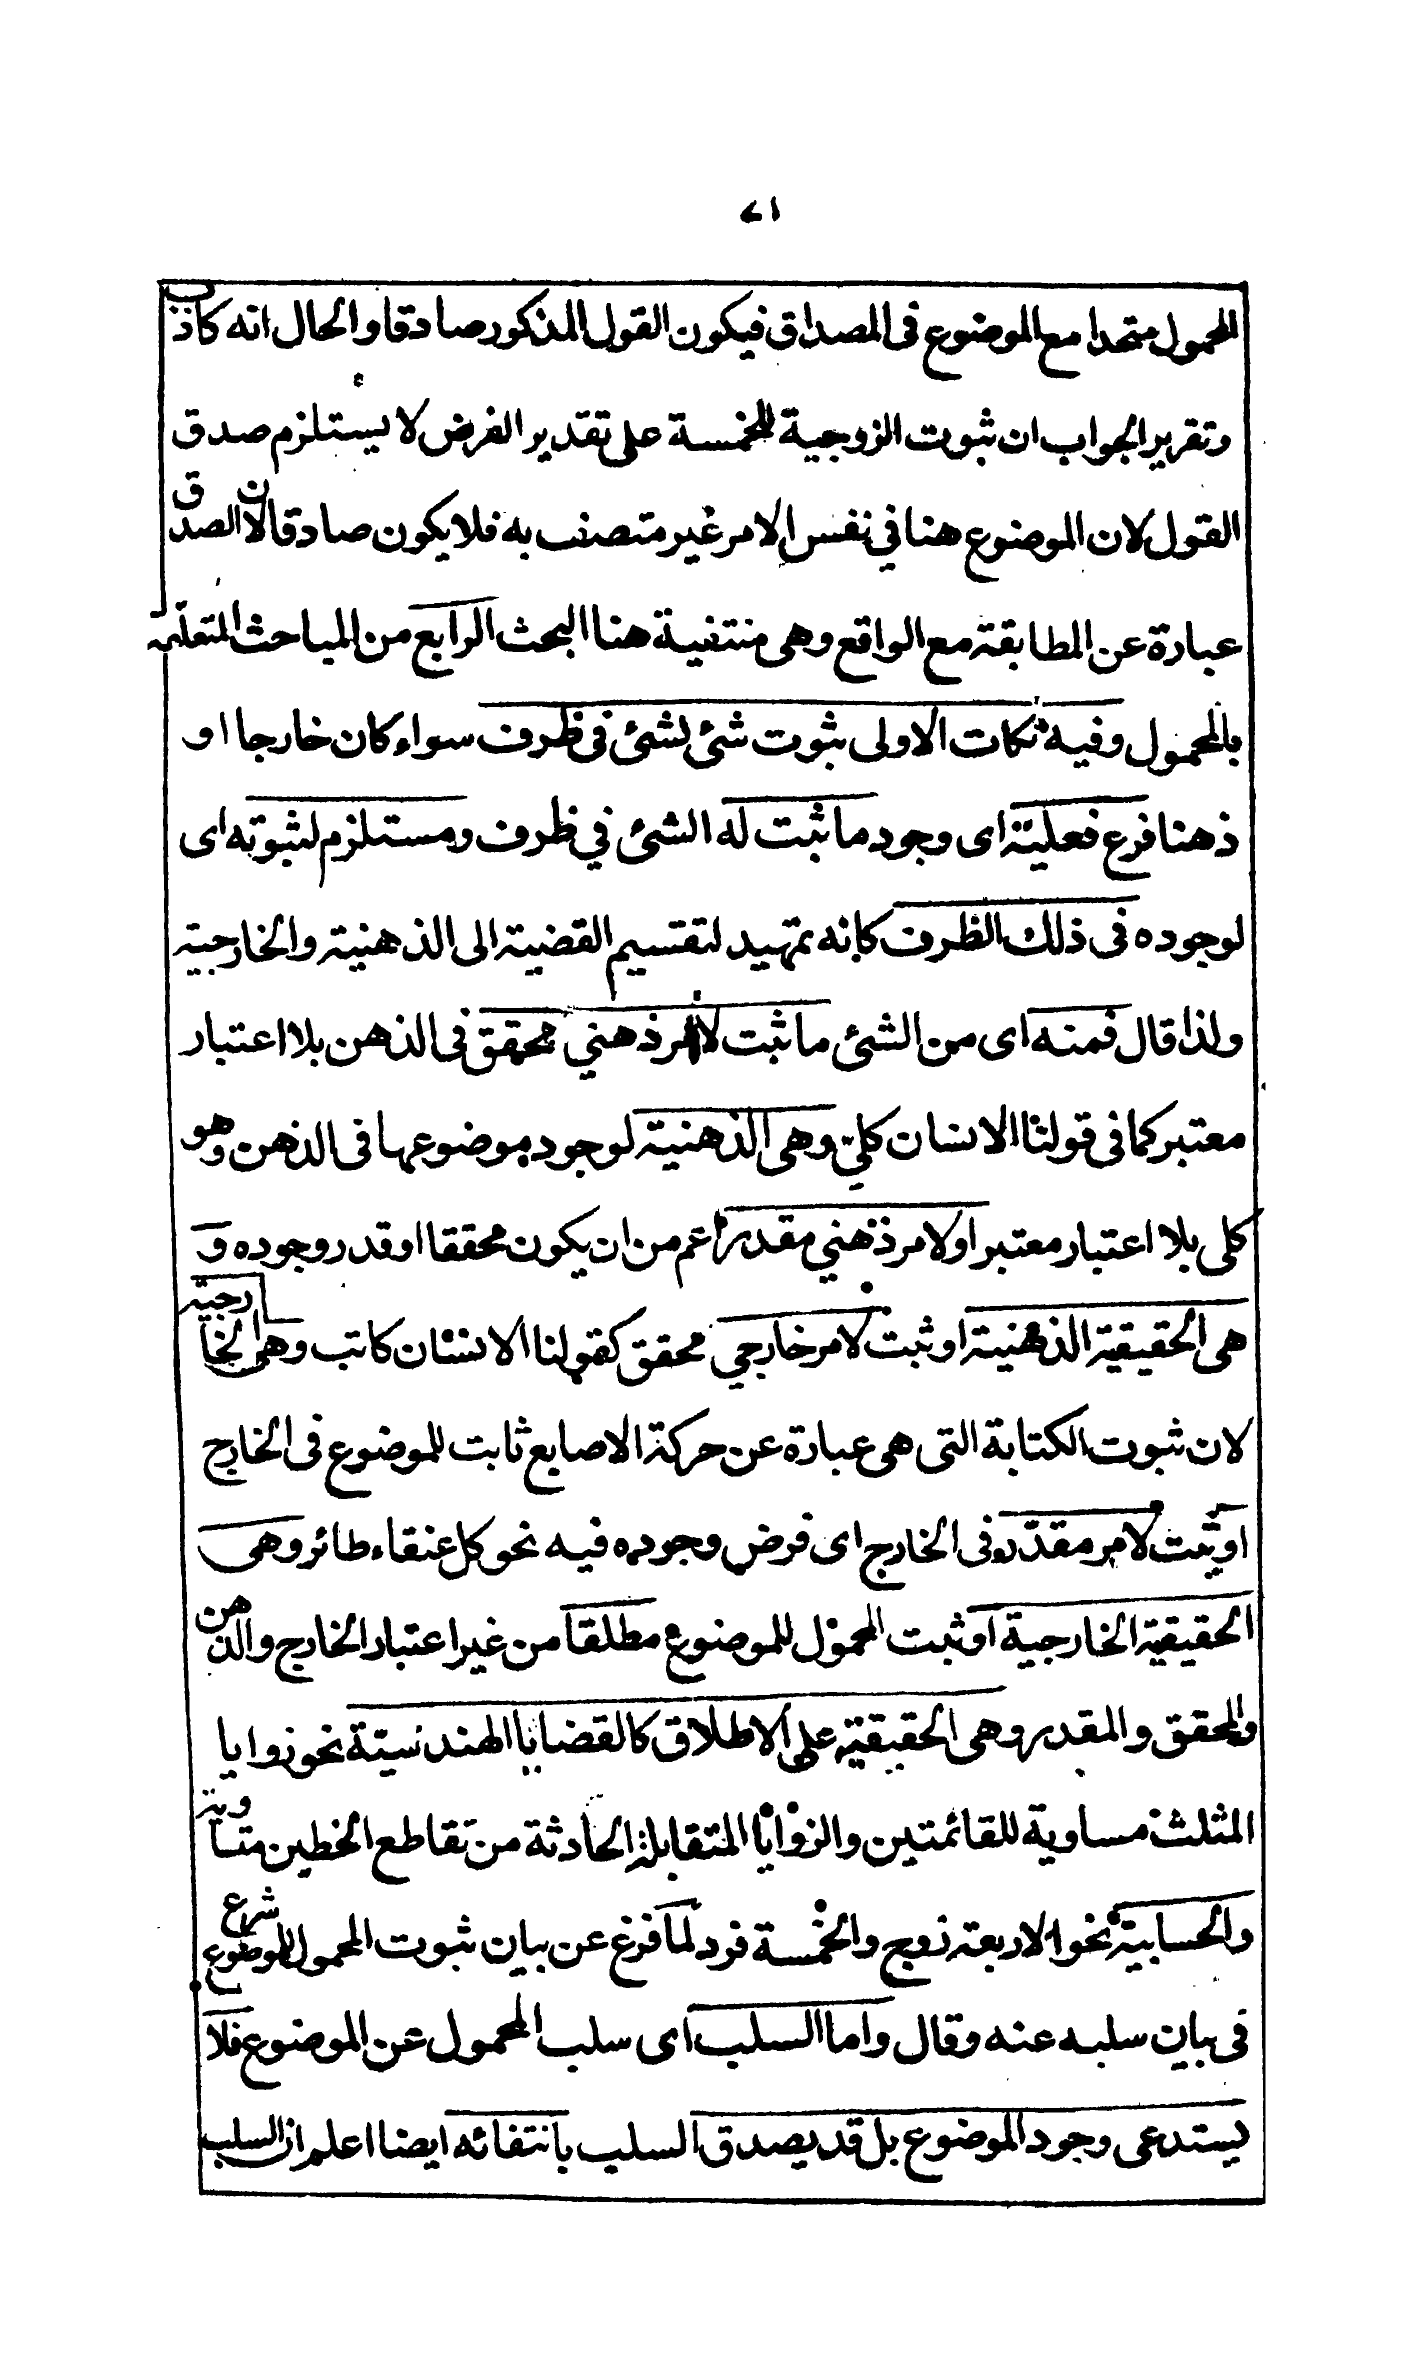 ۷۱
المحمول متحدا مع الموضوع فى المصداق فيكون القول المذكور صادقا والحال انه كاذب
وتقرير الجواب ان ثبوت الزوجية للخمسة على تقدير الفرض لا يستلزم صدق
القول لان الموضوع هنا في نفس الامر غير متصف به فلا يكون صادقا لان الصدق
عبارة عن المطابقة مع الواقع وهى منتفية هنا البحث الرابع من المباحث المتعلقة
بالمحمول وفيه نكات الاولى ثبوت شئ لشئ فى ظرف سواء كان خارجا او
ذهنا فرع فعلية اى وجود ما ثبت له الشئ في ظرف ومستلزم لثبوته اى
لوجوده فى ذلك الظرف كانه تمهيد لتقسيم القضية الى الذهنية والخارجية
ولذا قال فمنه اى من الشئ ما ثبت لامر ذهني محقق فى الذهن بلا اعتبار
معتبر كما فى قولنا الانسان كلي وهى الذهنية لوجود موضوعها فى الذهن وهو
كلى بلا اعتبار معتبر او لامر ذهني مقدر اعم من ان يكون محققا او قدر وجوده و
هى الحقيقية الذهنية او ثبت لامر خارجي محقق كقولنا الانسان كاتب وهى الخارجية
لان ثبوت الكتابة التى هى عبارة عن حركة الاصابع ثابت للموضوع فى الخارج
او ثبت لامر مقدر فى الخارج اى فرض وجوده فيه نحو كل عنقاء طائر وهى
الحقيقية الخارجية او ثبت المحمول للموضوع مطلقا من غير اعتبار الخارج والذهن
والمحقق والمقدر وهى الحقيقية على الاطلاق كالقضايا الهندسية نحو زوايا
المثلث مساوية للقائمتين والزوايا المتقابلة الحادثة من تقاطع الخطين متساوية
والحسابية نحو الاربعة زوج والخمسة فرد لما فرغ عن بيان ثبوت المحمول للموضوع شرع
فى بيان سلبه عنه وقال واما السلب اى سلب المحمول عن الموضوع فلا
يستدعى وجود الموضوع بل قد يصدق السلب بانتفائه ايضا اعلم ان السلب